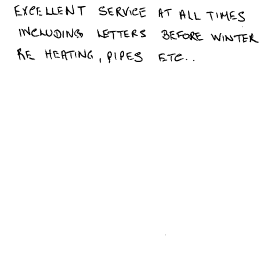 EXCELLENT SERVICE AT ALL TIMES
INCLUDING LETTERS BEFORE WINTER
RE HEATING, PIPES ETC..